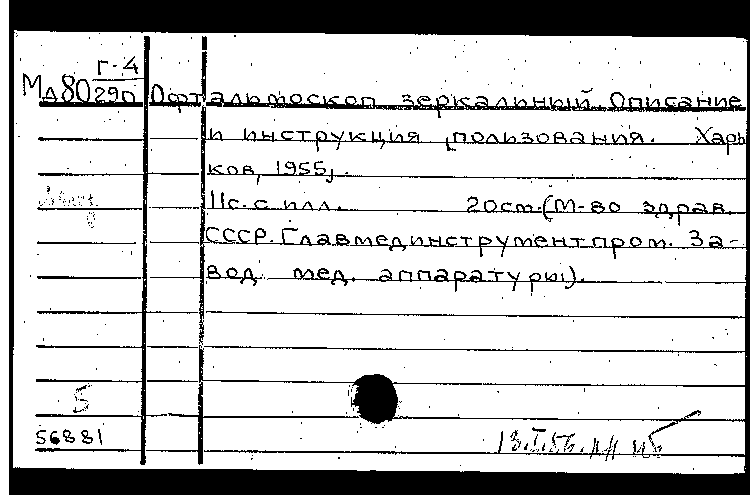 Г-4
Мд80290 Офтальмоскоп зеркалиный. Описание
и инструкция пользования. Харь
ков, 1955,.
11с. с илл. 20см.(М-во здрав.
СССР. Главмединструментпром. За-
вод мед. аппаратуры).
5
56881